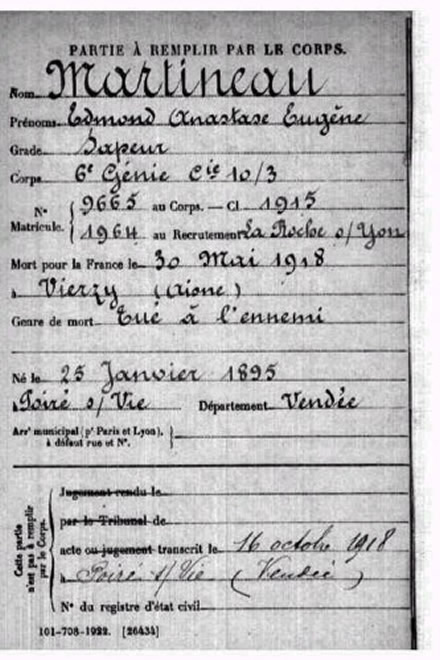 PARTIE À REMPLIR PAR LE CORPS.
Nom Martineau
Prénoms Edmond Anastase Eugène
Grade Sapeur
Corps 6e Génie Cie 10/3
N° Matricule. { 9665 au Corps. — Cl 1915
1964 au Recrutement La Roche s/ Yon
Mort pour la France le 30 Mai 1918
à Vierzy (Aisne)
Genre de mort Tué à l'ennemi
Né le 25 Janvier 1895
à Poiré s/ Vie Département Vendée
Arrt municipal (pr Paris et Lyon), à défaut rue et N°. }
Cette partie n'est pas à remplir par le Corps.
Jugement rendu le
par le Tribunal de
acte ou jugement transcrit le 16 octobre 1918
à Poiré s/ Vie (Vendée)
N° du registre d'état civil
101-708-1922. [26434]